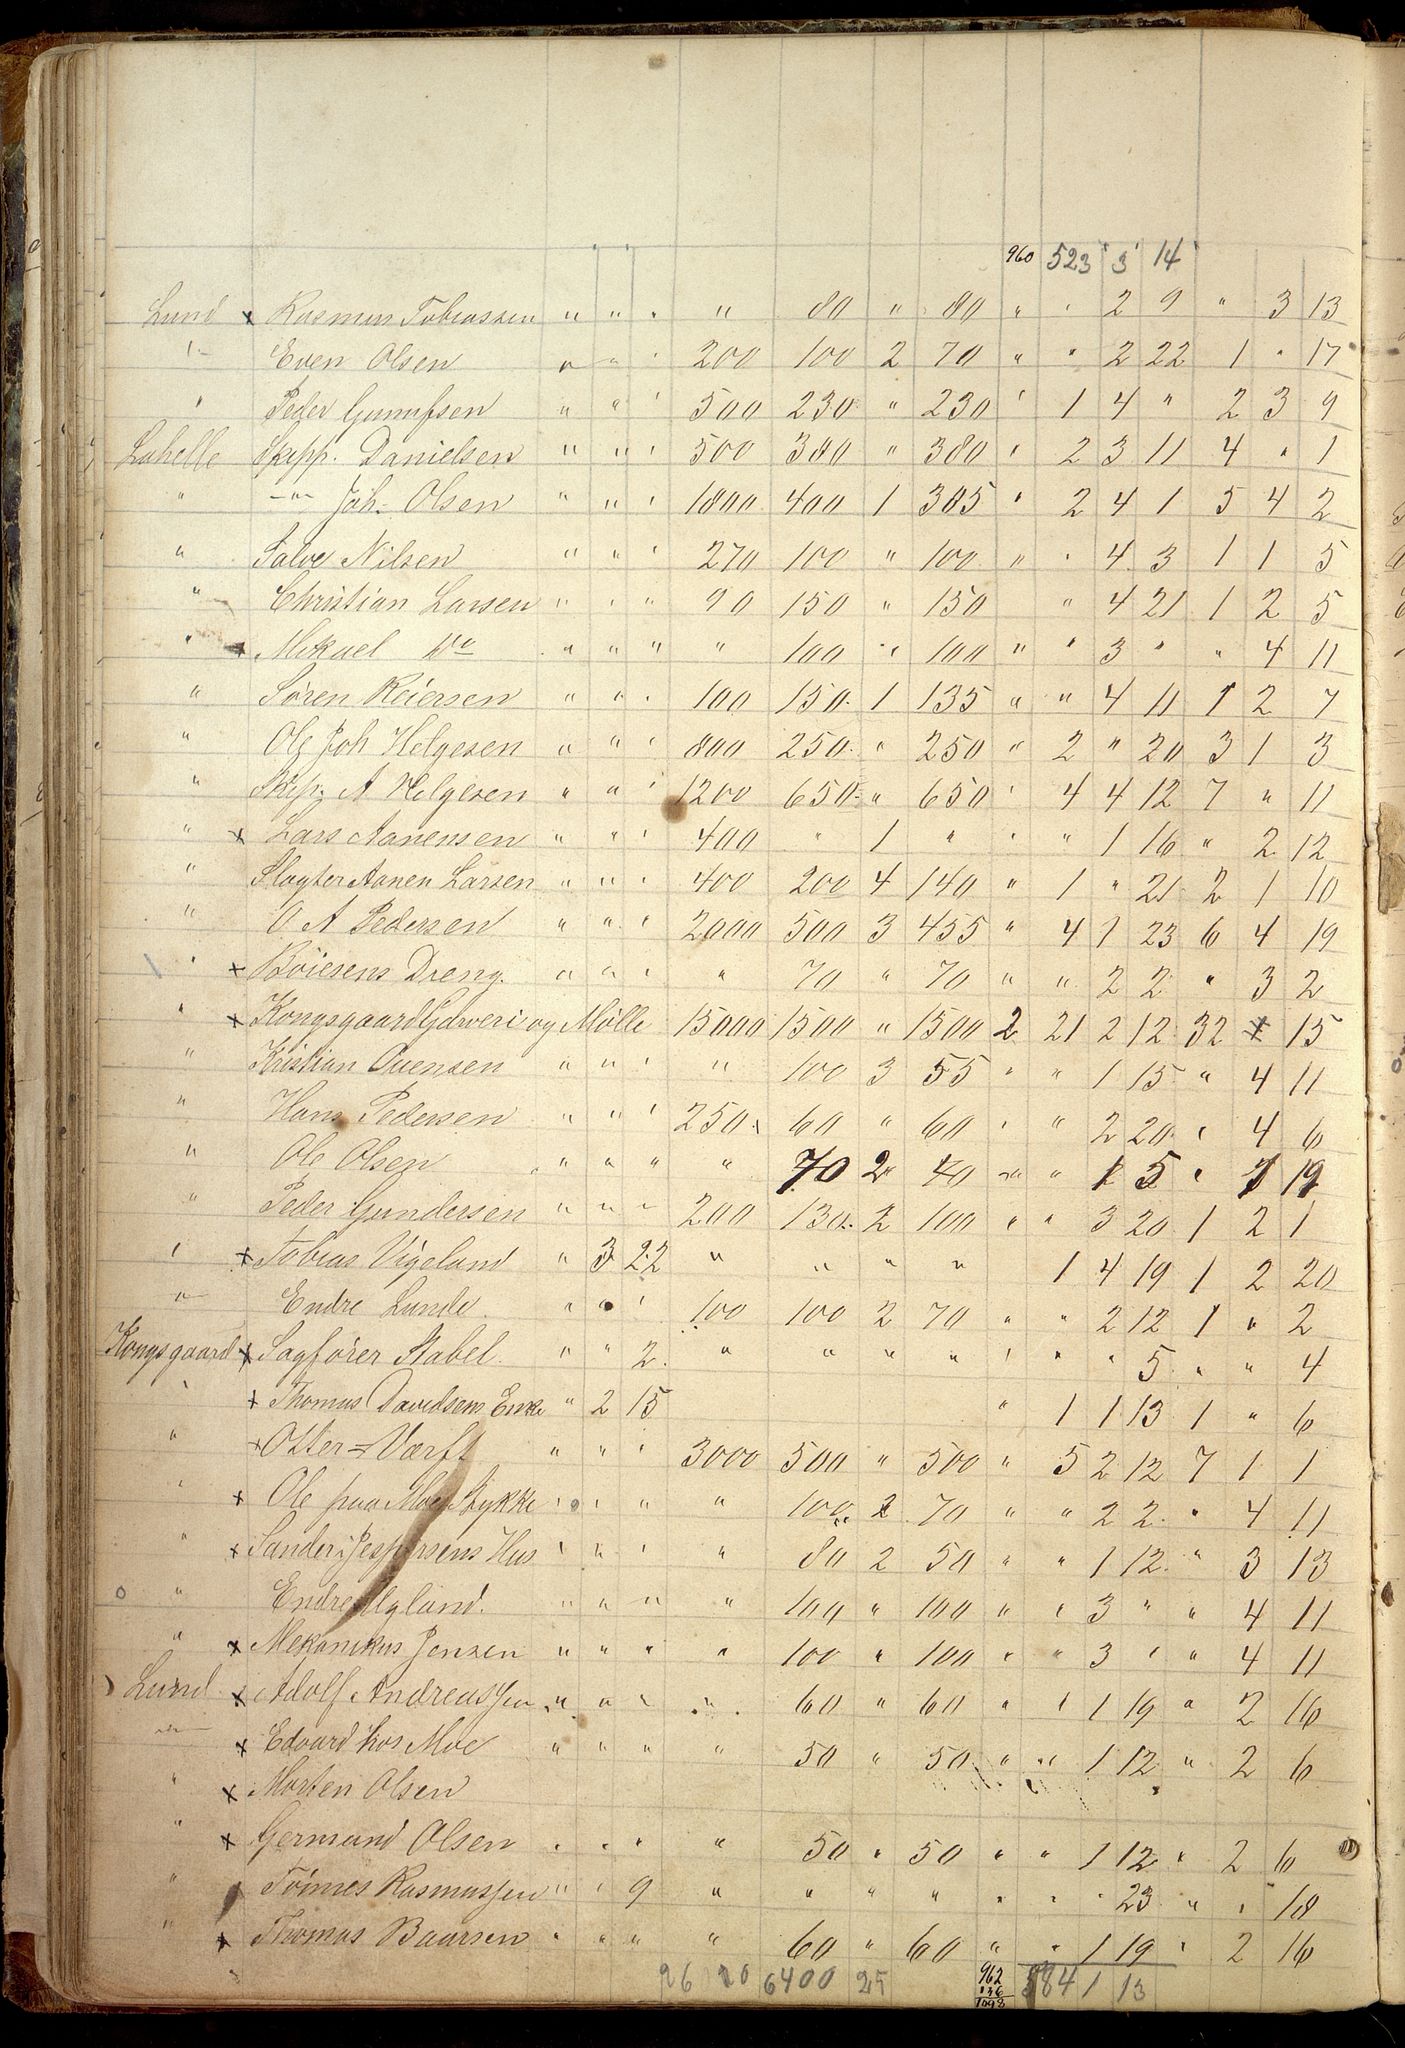 960 523 3 14
Lund x Rasmus Tobiassen " " " " 80 " 80 " " 2 9 " 3 13
" Even Olsen " " " 200 100 2 70 " " 2 22 1 " 17
" Peder Gunufsen " " " 500 230 " 230 " 1 4 " 2 3 9
Lahelle Skipp. Danielsen " " " 500 380 " 380 " 2 3 11 4 " 1
" —"— Joh. Olsen " " " 1800 400 1 385 " 2 4 1 5 4 2
" Salve Nilsen " " " 270 100 " 100 " " 4 3 1 1 5
" Christian Larsen " " " 90 150 " 150 " 4 21 1 2 5
" x Mikael Do " " " " 100 " 100 " " 3 " " 4 11
" Sören Reiersen " " " 100 150 1 135 " " 4 11 1 2 7
" Ole Joh Helgesen " " " 800 250 " 250 " 2 " 20 3 1 3
" Skip. A Helgesen " " " 1200 650 " 650 " 4 4 12 7 " 11
" x Lars Aanensen " " " 400 " 1 " " " 1 16 " 2 12
" Slagter Aanen Larsen " " " 400 200 4 140 " 1 " 21 2 1 10
" O A Pedersen " " " 2000 500 3 455 " 4 1 23 6 4 19
" x Böiesens Dreng. " " " " 70 " 70 " " 2 2 " 3 2
" x Kongsgaard Garveri og Mölle 15000 1500 " 1500 2 21 2 12 32 x 15
" Kristian Ovensen " " " " 100 3 55 " " 1 15 " 4 11
" Hans Pedersen " " " 250 60 " 60 " " 2 20 " 4 6
" Ole Olsen " " " " 70 2 40 " " 1 5 " 1 19
" Peder Gundersen " " " 200 130 2 100 " " 3 20 1 2 1
" x Tobias Vigeland " 3 22 " " " " 1 4 19 1 2 20
" Endre Lunde " " " 100 100 2 70 " " 2 12 1 " 2
Kongsgaard x Sagfører Stabel. " " 2. " " " " " " " 5 " " 4
" x Thomas Davidsens Enke " 2 15 " 1 1 13 1 " 6
" x Otter=Værft " " " 3000 500 " 500 " 5 2 12 7 1 1
" x Ole paa Moe Stykke " " " " 100 2 70 " " 2 2 " 4 11
" x Sander Jespersens Hus " " " " 80 2 50 " " 1 12 " 3 13
o " Endre Ugland. " " " " 100 " 100 " " 3 " " 4 11
" x Mekanikus Jensen " " " " 100 " 100 " " 3 " " 4 11
Lund x Adolf Andreassen " " " " 60 " 60 " " 1 19 " 2 16
—"— x Edvard hos Moe " " " " 50 " 50 " " 1 12 " 2 6
" x Morten Olsen
" x Germund Olsen " " " " 50 " 50 " " 1 12 " 2 6
" Tönnes Rasmussen " " 9 " " " " " " " 23 " " 18
" x Thomas Baarsen " " " " 60 " 60 " " 1 19 " 2 16
26 20 6400 25 962 584 1 13
136
1098